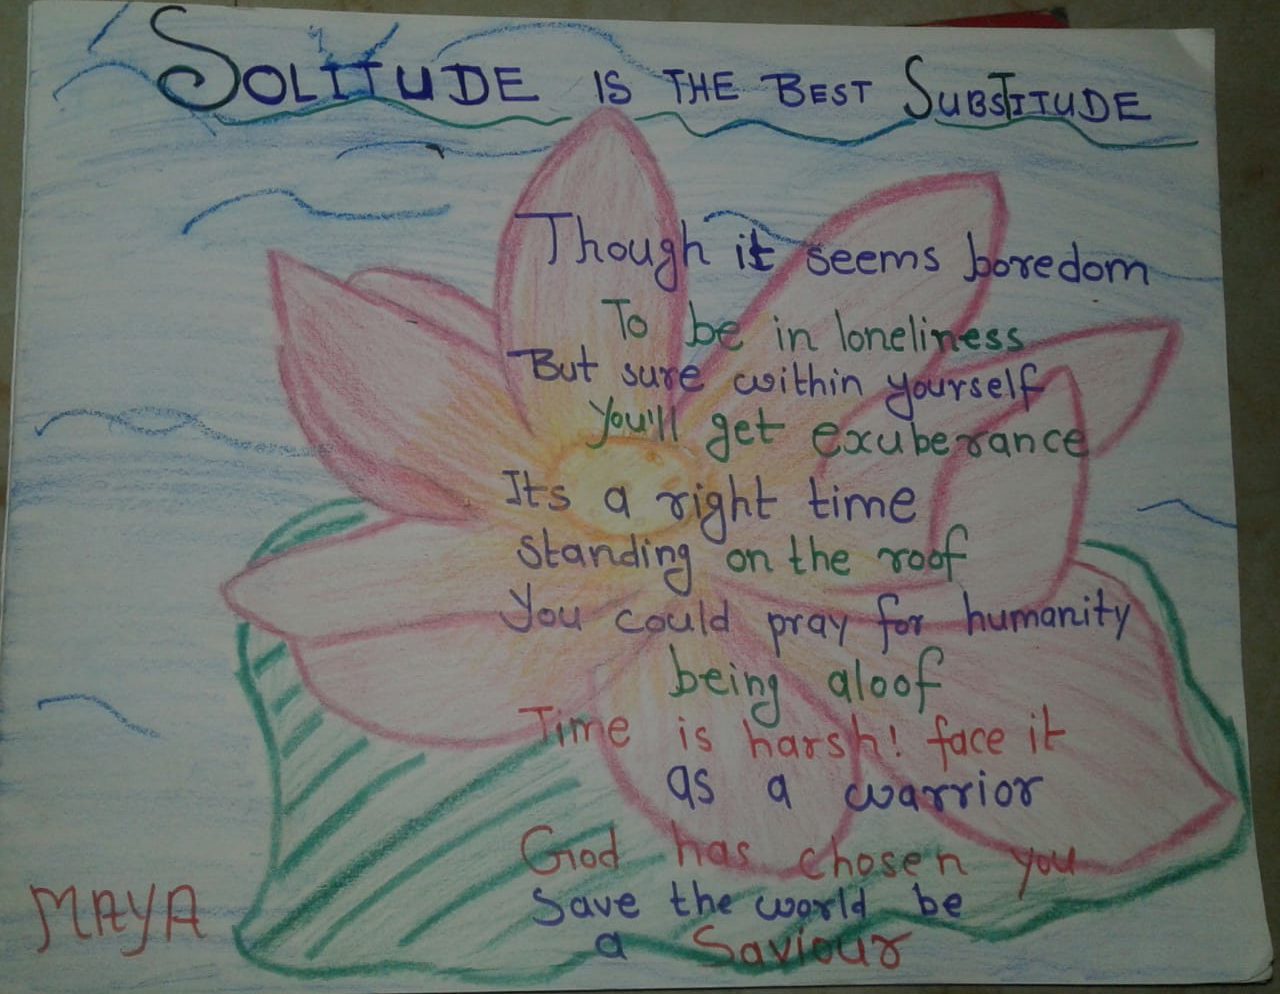 SOLITUDE IS THE BEST SUBSTITUDE
Though it seems boredom
To be in loneliness
But sure within yourself
You'll get exuberance
Its a right time
Standing on the roof
You could pray for humanity
being aloof
Time is harsh! face it
as a warrior
God has chosen you
Save the world be
a Saviour
MAYA